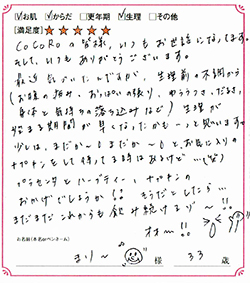 ☑お肌 ☑からだ □更年期 ☑生理 □その他
[満足度]★★★★★
CoCoRoの皆様、いつもお世話になってます。
そして、いつもありがとうございます。
最近気づいたんですが、生理前の不調から
(お腹の痛み、おっぱいの張り、ゆううつ、だるさ、
身体と気持ちの落ち込みなど) 生理が
始まる期間が早くなったかも…と思います
少しは、まだか~!まだか~!とお気に入りの
ナプキンをして待ってる時はあるけど…(笑)
プラセンタとハーブティー、ナプキンの
おかげでしょうか!! そうだとしたら…
まだまだこれからも飲み続けるゾ~!!
オォー!!
お名前(本名orペンネーム)
まり~ 様 33 歳